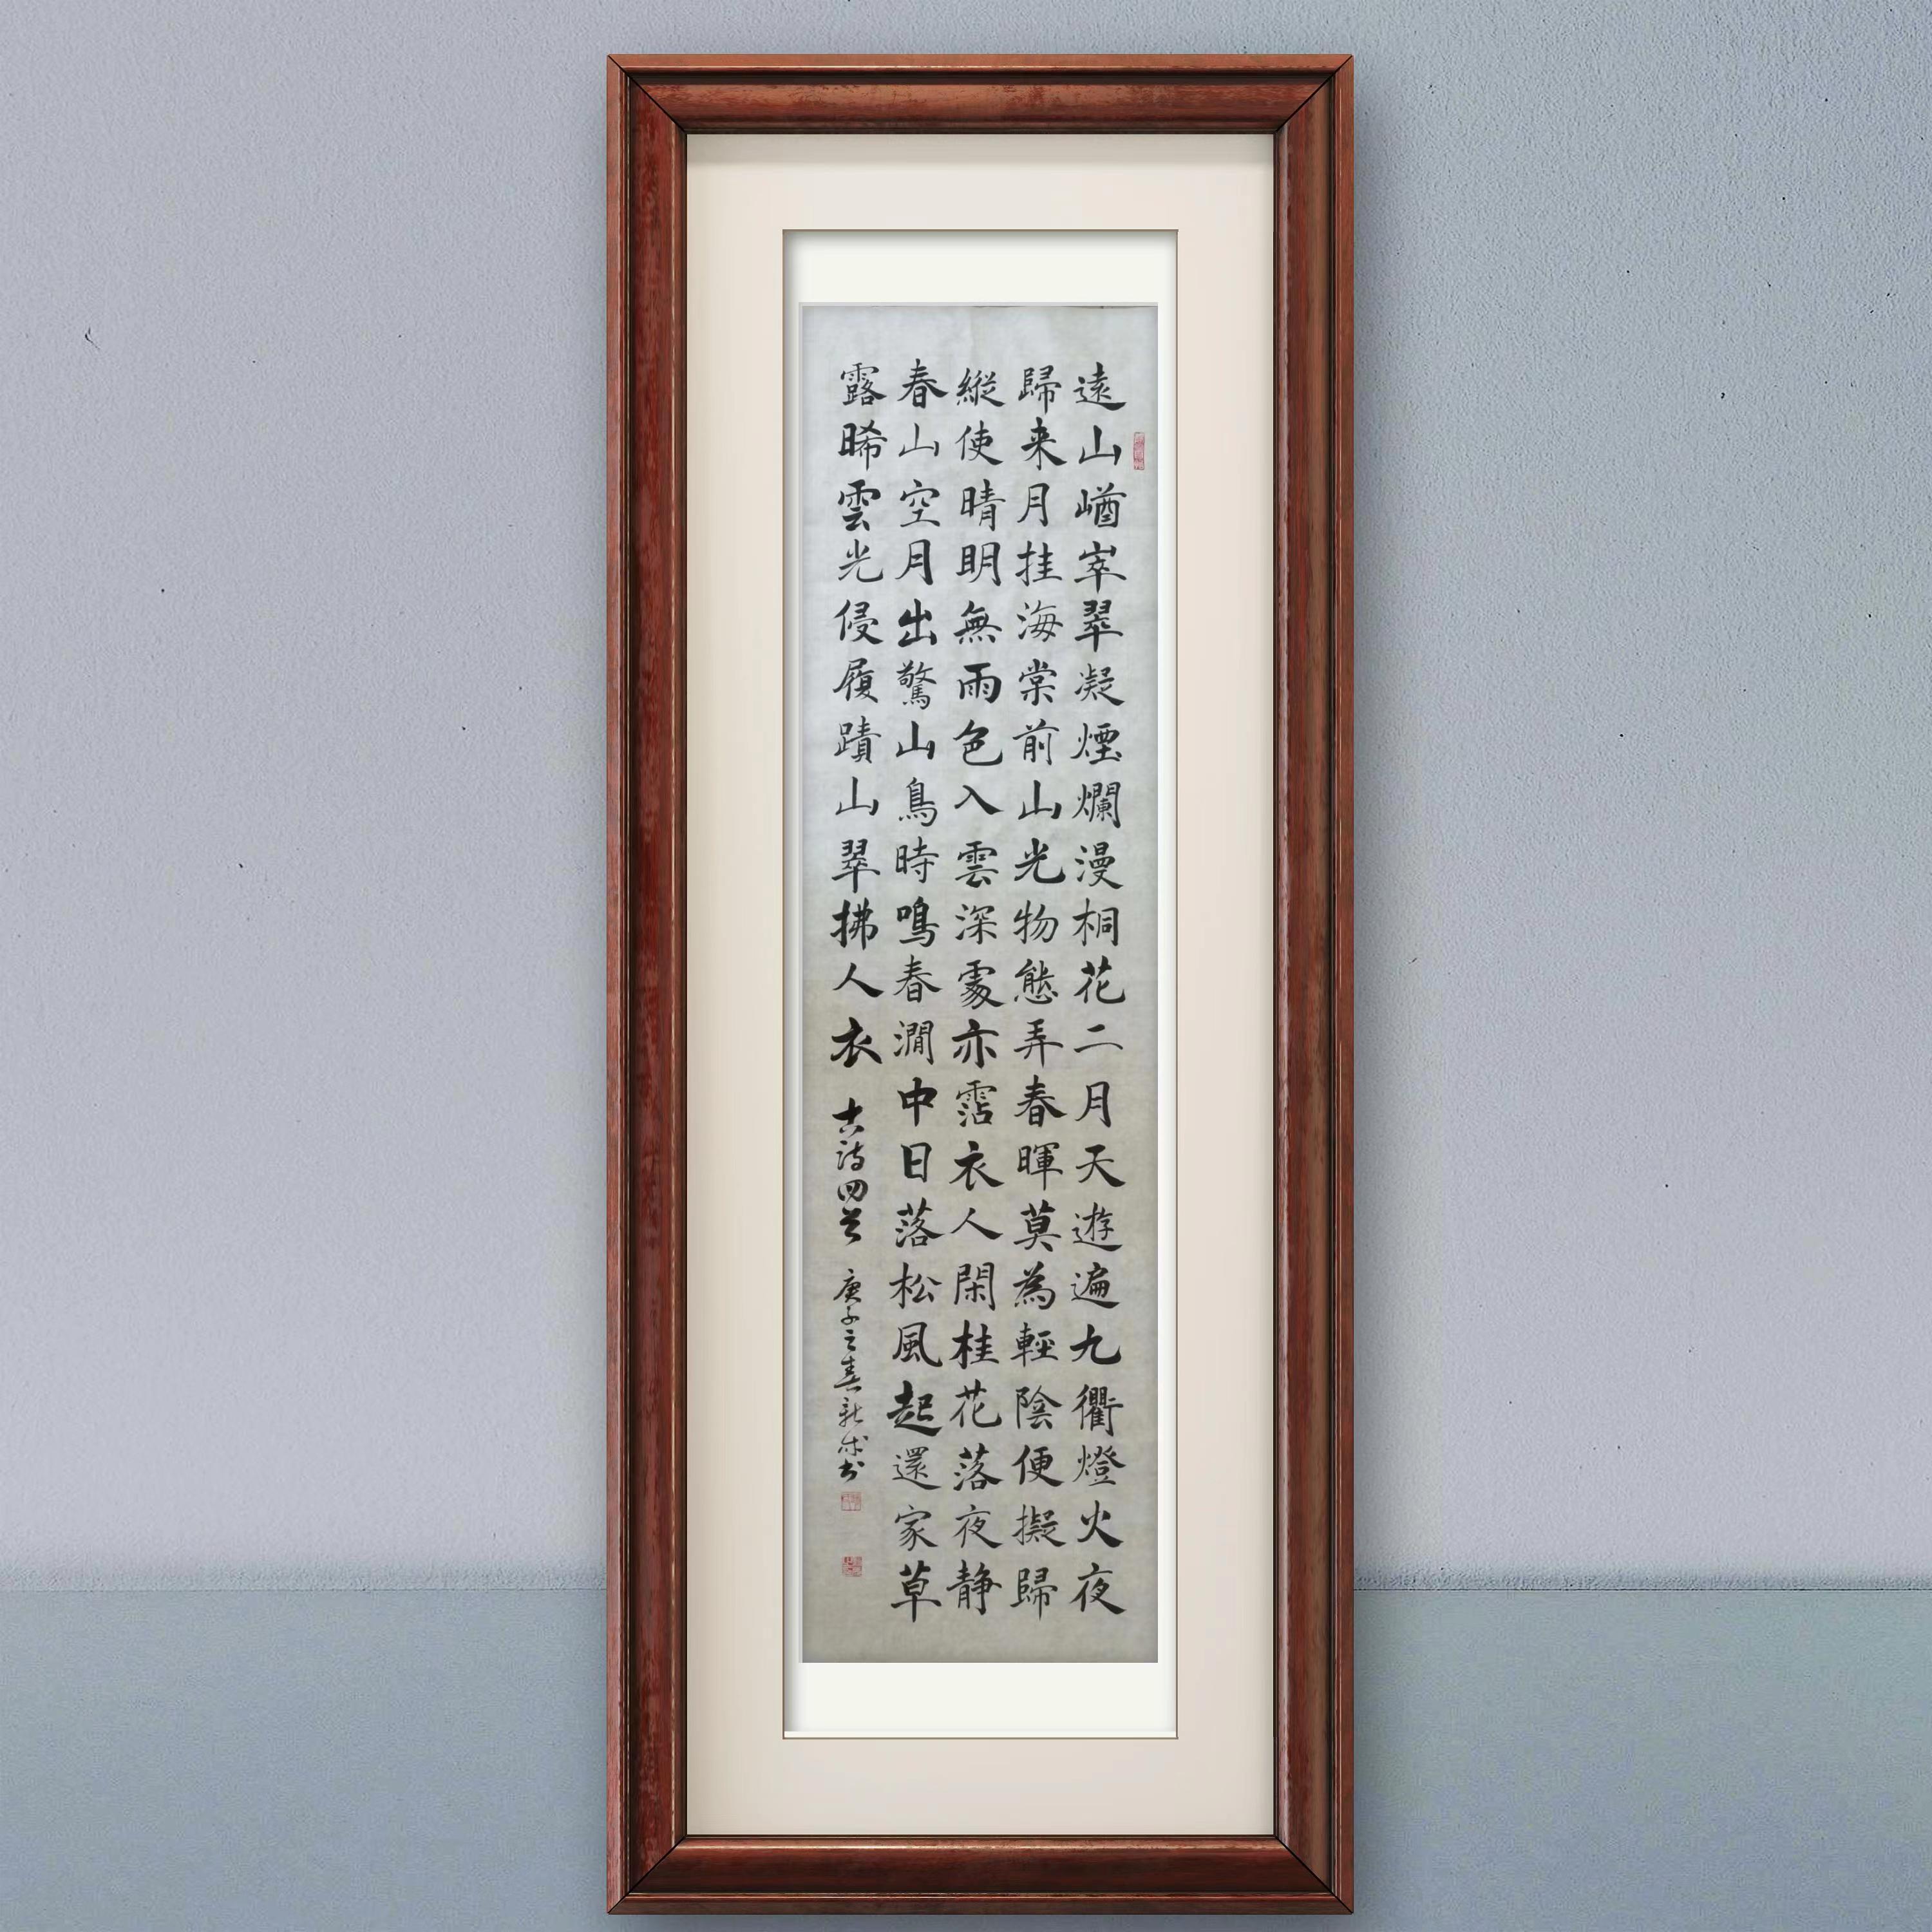 遠山崷崒翠凝煙爛漫桐花二月天遊遍九衢燈火夜
歸来月挂海棠前山光物態弄春暉莫為輕陰便擬歸
縱使晴明無雨色入雲深處亦霑衣人閑桂花落夜静
春山空月出驚山鳥時鳴春澗中日落松風起還家草
露晞雲光侵履蹟山翠拂人衣 古詩四首 庚子之春 書